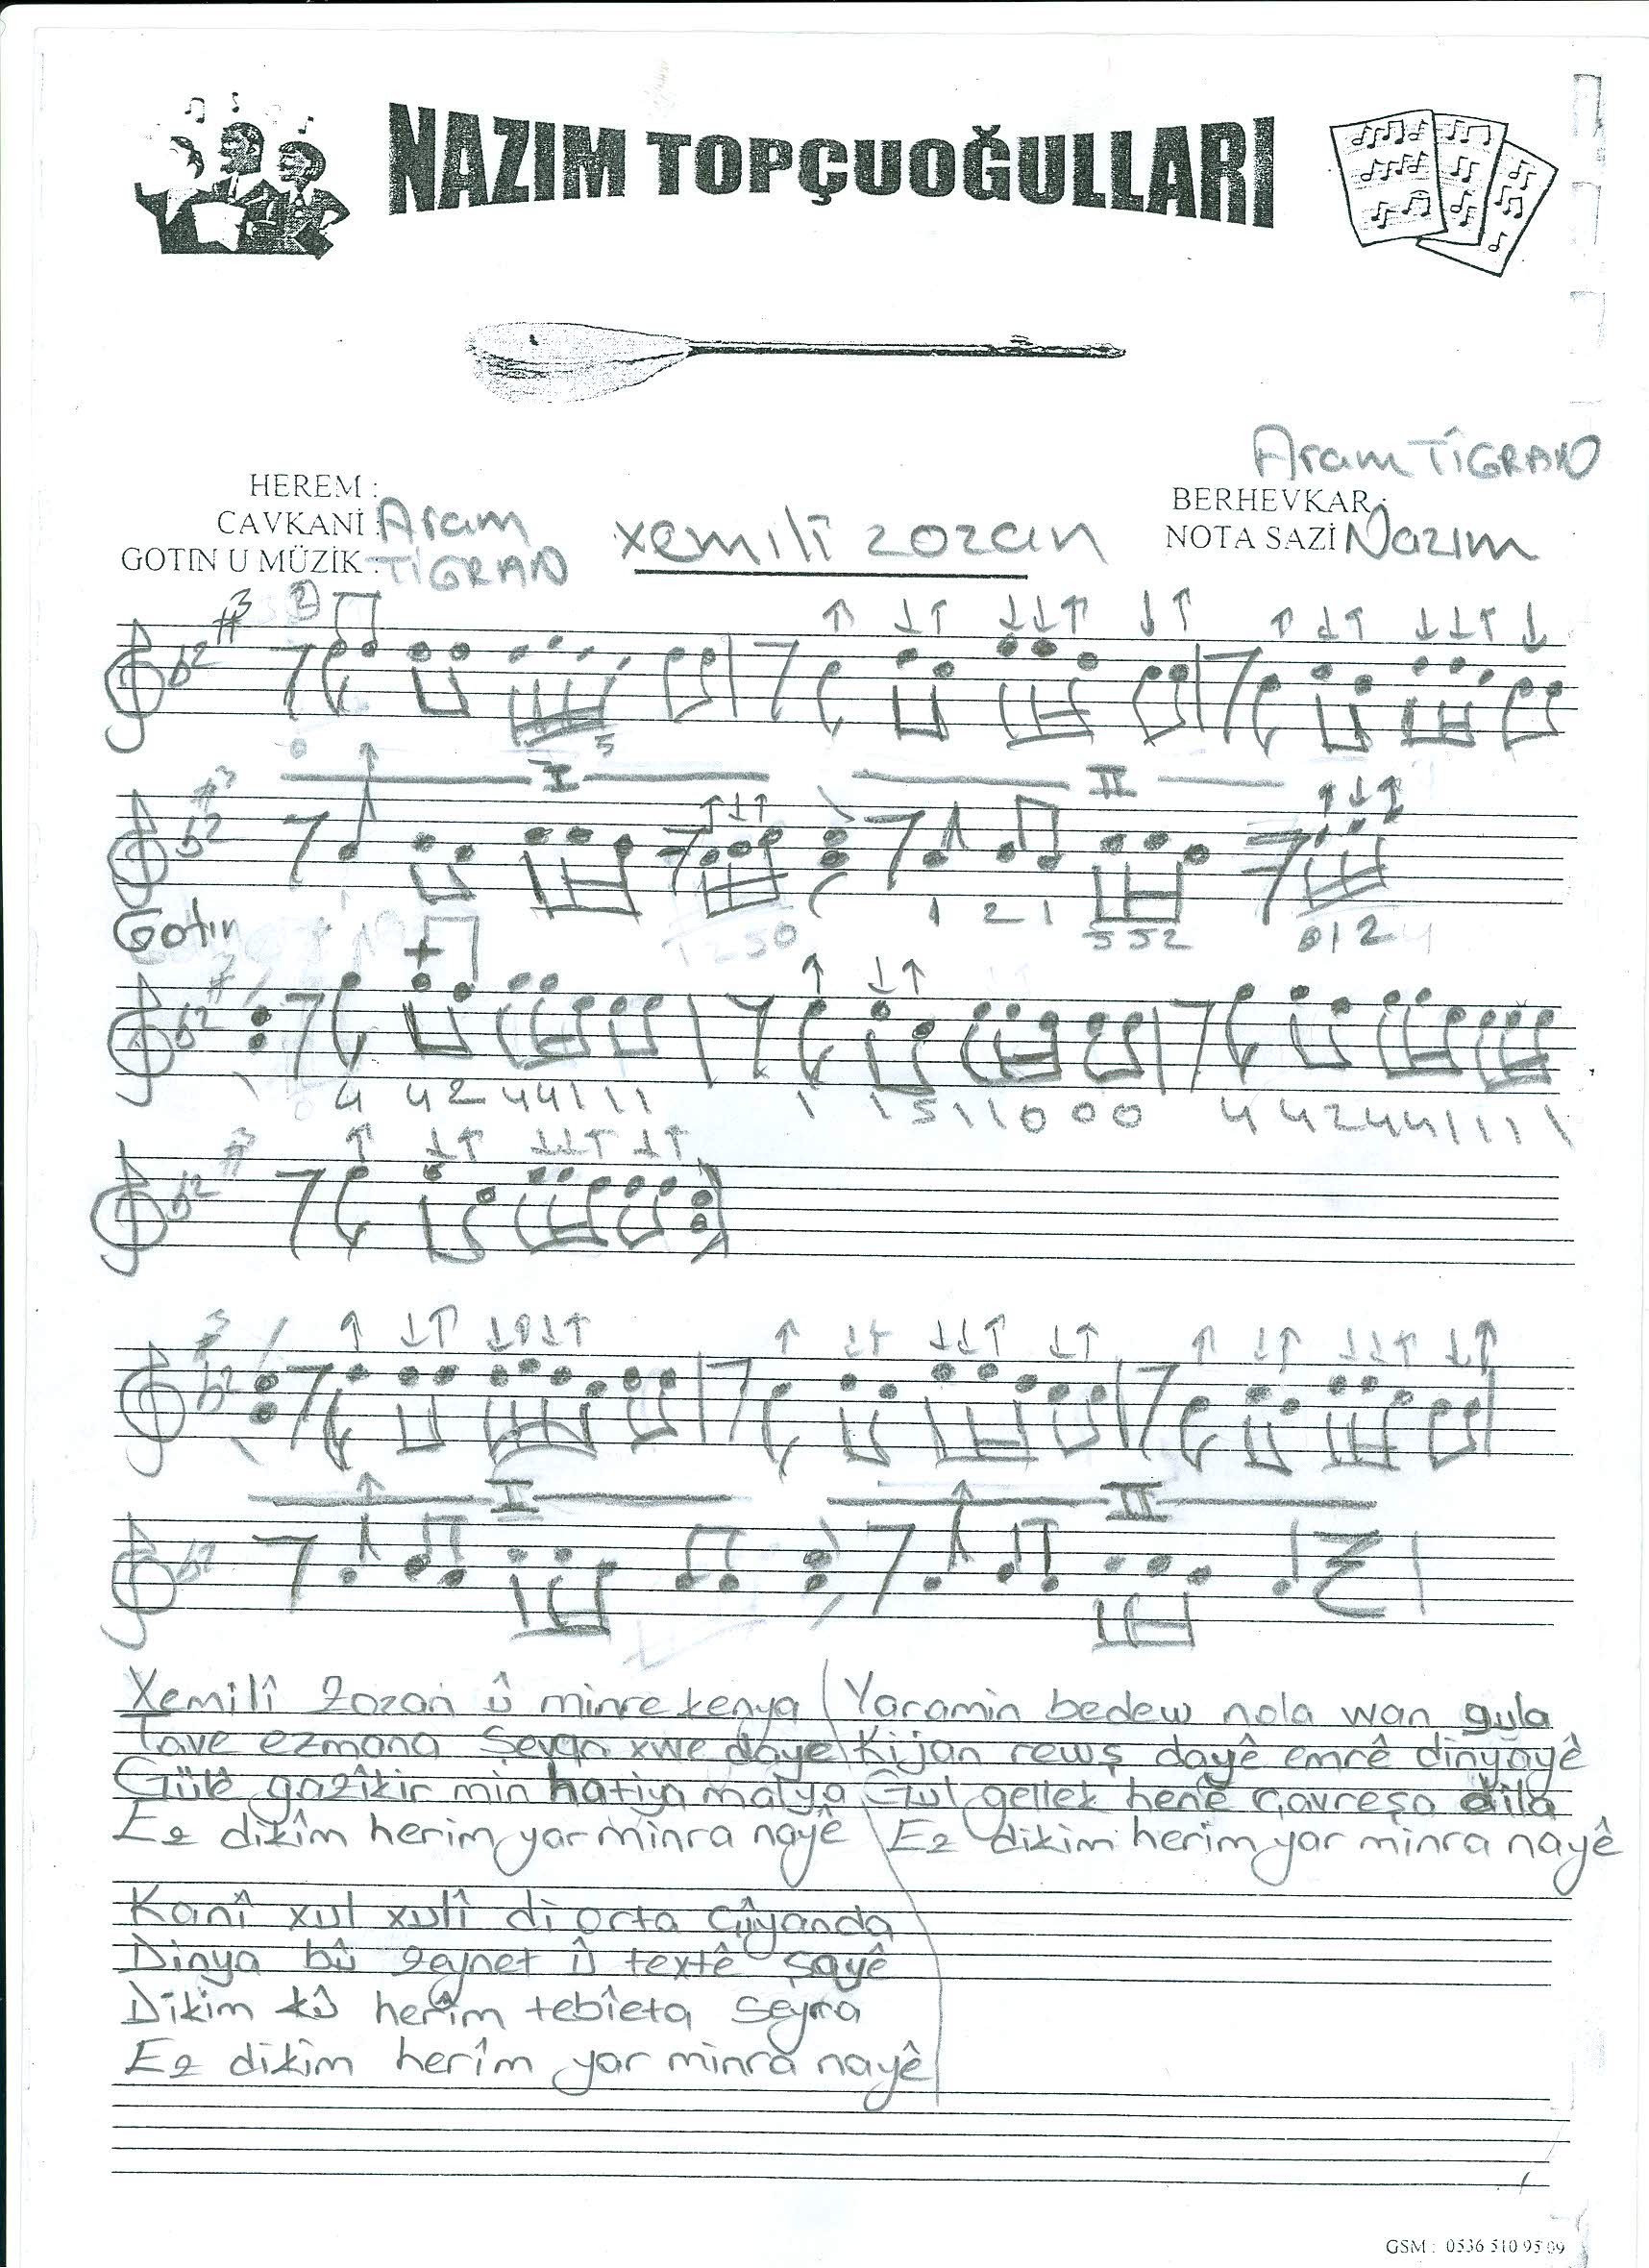 NAZIM TOPÇUOĞULLARI
Aram TİGRAN
HEREM :
BERHEVKAR :
CAVKANİ : Aram
xemılî zozan
NOTA SAZİ Nazım
GOTIN U MÜZİK : TİGRAN
I
II
1 2 1 5 5 2 0 1 2
Gotın
4 4 2 4 4 1 1 1
1 1 5 1 1 0 0 0
4 4 2 4 4 1 1 1 1
I
II
Xemilî zozan û minre kenya
Tave ezmana Şevqa xwe daye
Gülê gazîkir min hatiya malya
Ez dikîm herim yar minra nayê
Yaramin bedew nola wan gula
Kîjan rewş dayê emrê dinyayê
Gul gellek henê çavreşa dila
Ez dikim herim yar minra nayê
Kanî xul xulî di orta çîyanda
Dinya bû zeynet û textê şayê
Dikim kû herîm tebîeta seyra
Ez dikîm herîm yar minra nayê
GSM : 0536 510 95 09